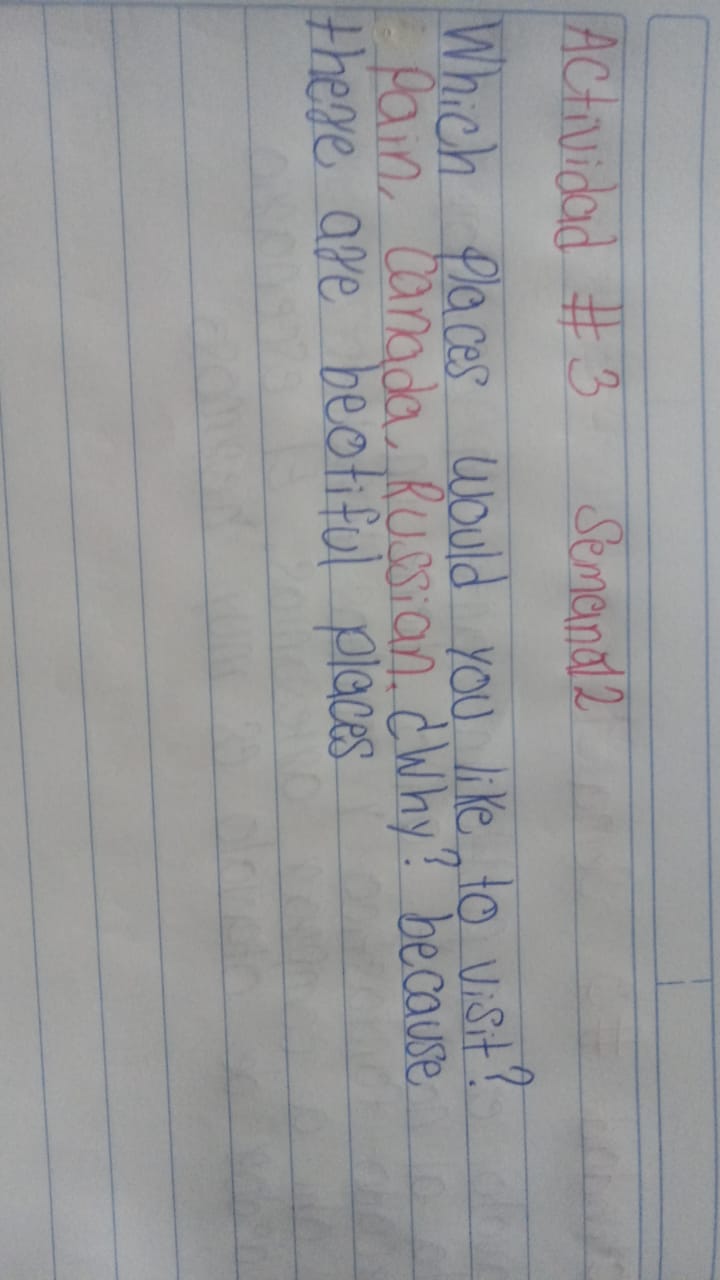 Actividad #3 Semana 2
Which places would you like to visit?
Pain, Canada, Russian. ¿Why? because
there are beotiful places